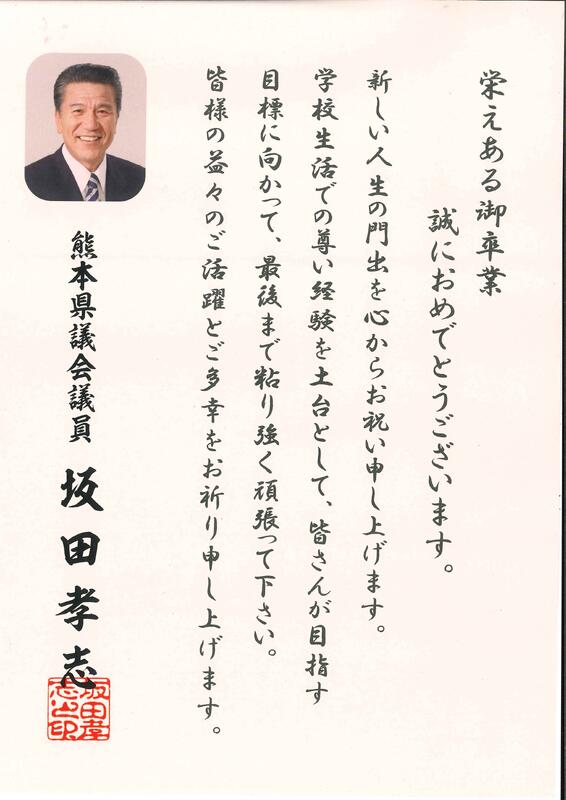 栄えある御卒業
誠におめでとうございます。
新しい人生の門出を心からお祝い申し上げます。
学校生活での尊い経験を土台として、皆さんが目指す
目標に向かって、最後まで粘り強く頑張って下さい。
皆様の益々のご活躍とご多幸をお祈り申し上げます。
熊本県議会議員 坂田孝志
坂田孝志之印